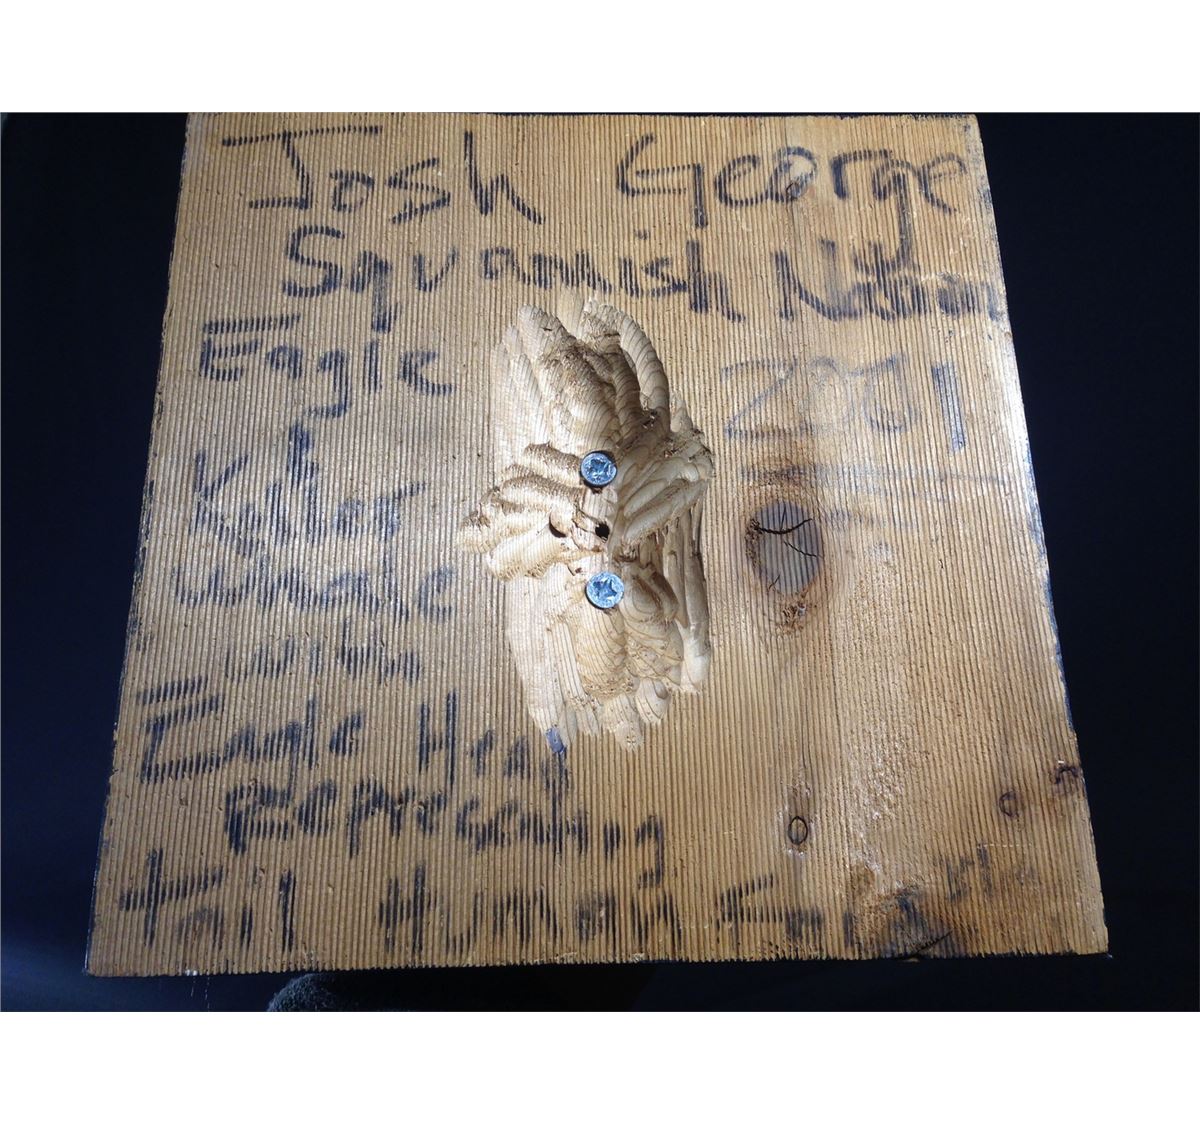 Josh George
Squamish Nation
Eagle 2001
Killer
Whale
with
Eagle Head
Representing
Tail Human